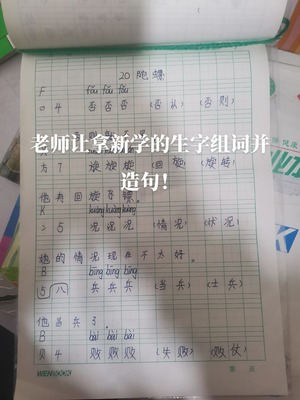 20 陀螺
F fǒu fǒu fǒu
口 4 否 否 否 （否认） （否则）
老师让拿新学的生字组词并
造句！
方 7 旋 旋 旋 （回旋） （旋转）
他再回旋
K kuàng kuàng kuàng
冫 5 况 况 况 （情况） （状况）
她的情况现在不太好。
B bīng bīng bīng
八 兵 兵 兵 （当兵） （士兵）
他当兵了。
B bài bài bài
贝 4 败 败 败 （失败） （败仗）